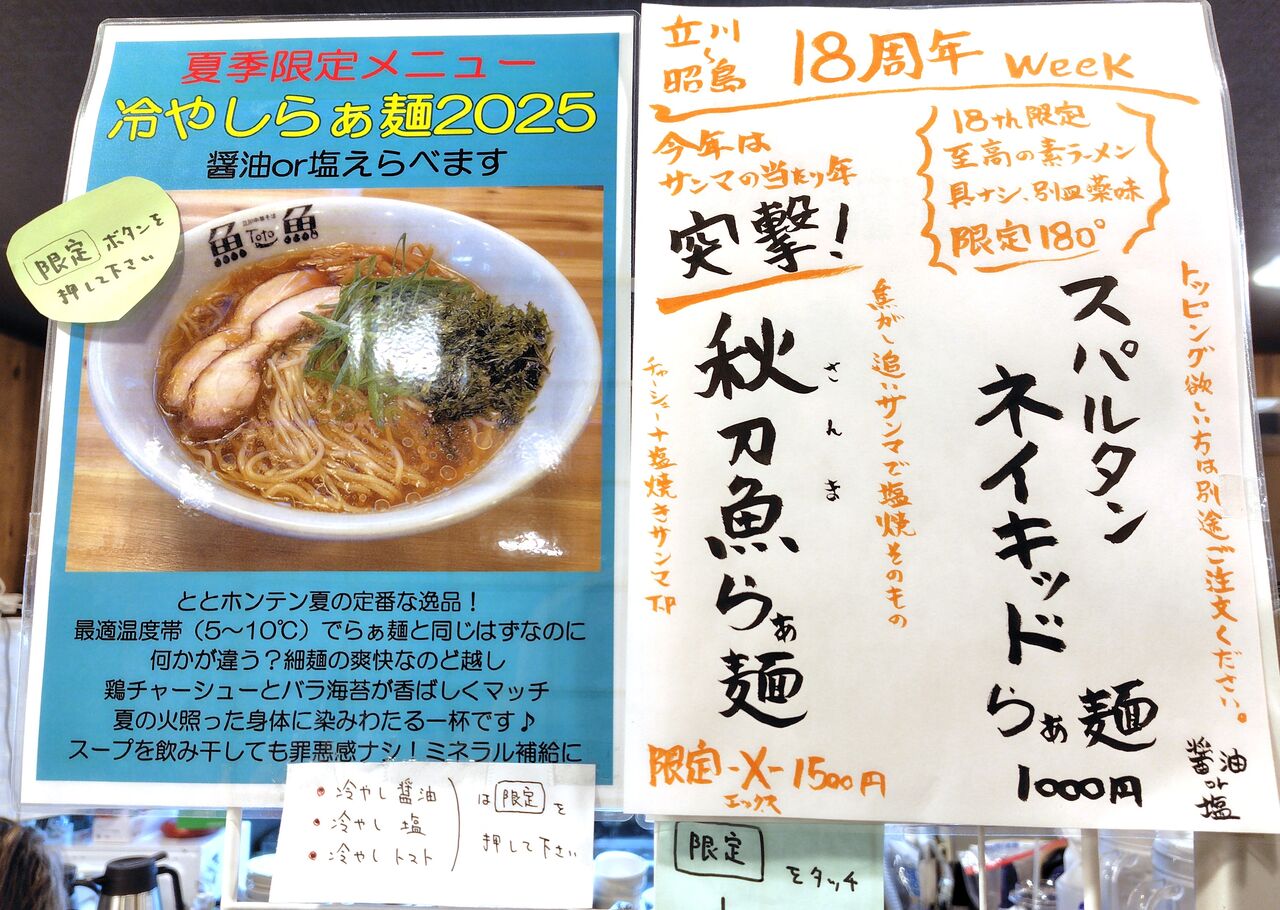 夏季限定メニュー
冷やしらぁ麺2025
醤油or塩えらべます
限定 ボタンを
押して下さい
魚 Toto 魚
ととホンテン夏の定番な逸品！
最適温度帯（5～10℃）でらぁ麺と同じはずなのに
何かが違う？細麺の爽快なのど越し
鶏チャーシューとバラ海苔が香ばしくマッチ
夏の火照った身体に染みわたる一杯です♪
スープを飲み干しても罪悪感ナシ！ミネラル補給に
・冷やし醤油
・冷やし 塩
・冷やしトマト
は 限定 を
押して下さい
立川～昭島 18周年 Week
18th限定
至高の素ラーメン
具ナシ、別皿薬味
限定180°
トッピング欲しい方は別途ご注文ください。
スパルタン
ネイキッド
らぁ麺
1000円
醤油or塩
今年は
サンマの当たり年
突撃！
焦がし追いサンマで塩焼そのもの
さんま
秋刀魚らぁ麺
チャーシュー+塩焼きサンマT.P
限定-X-1500円
エックス
限定 をタッチ